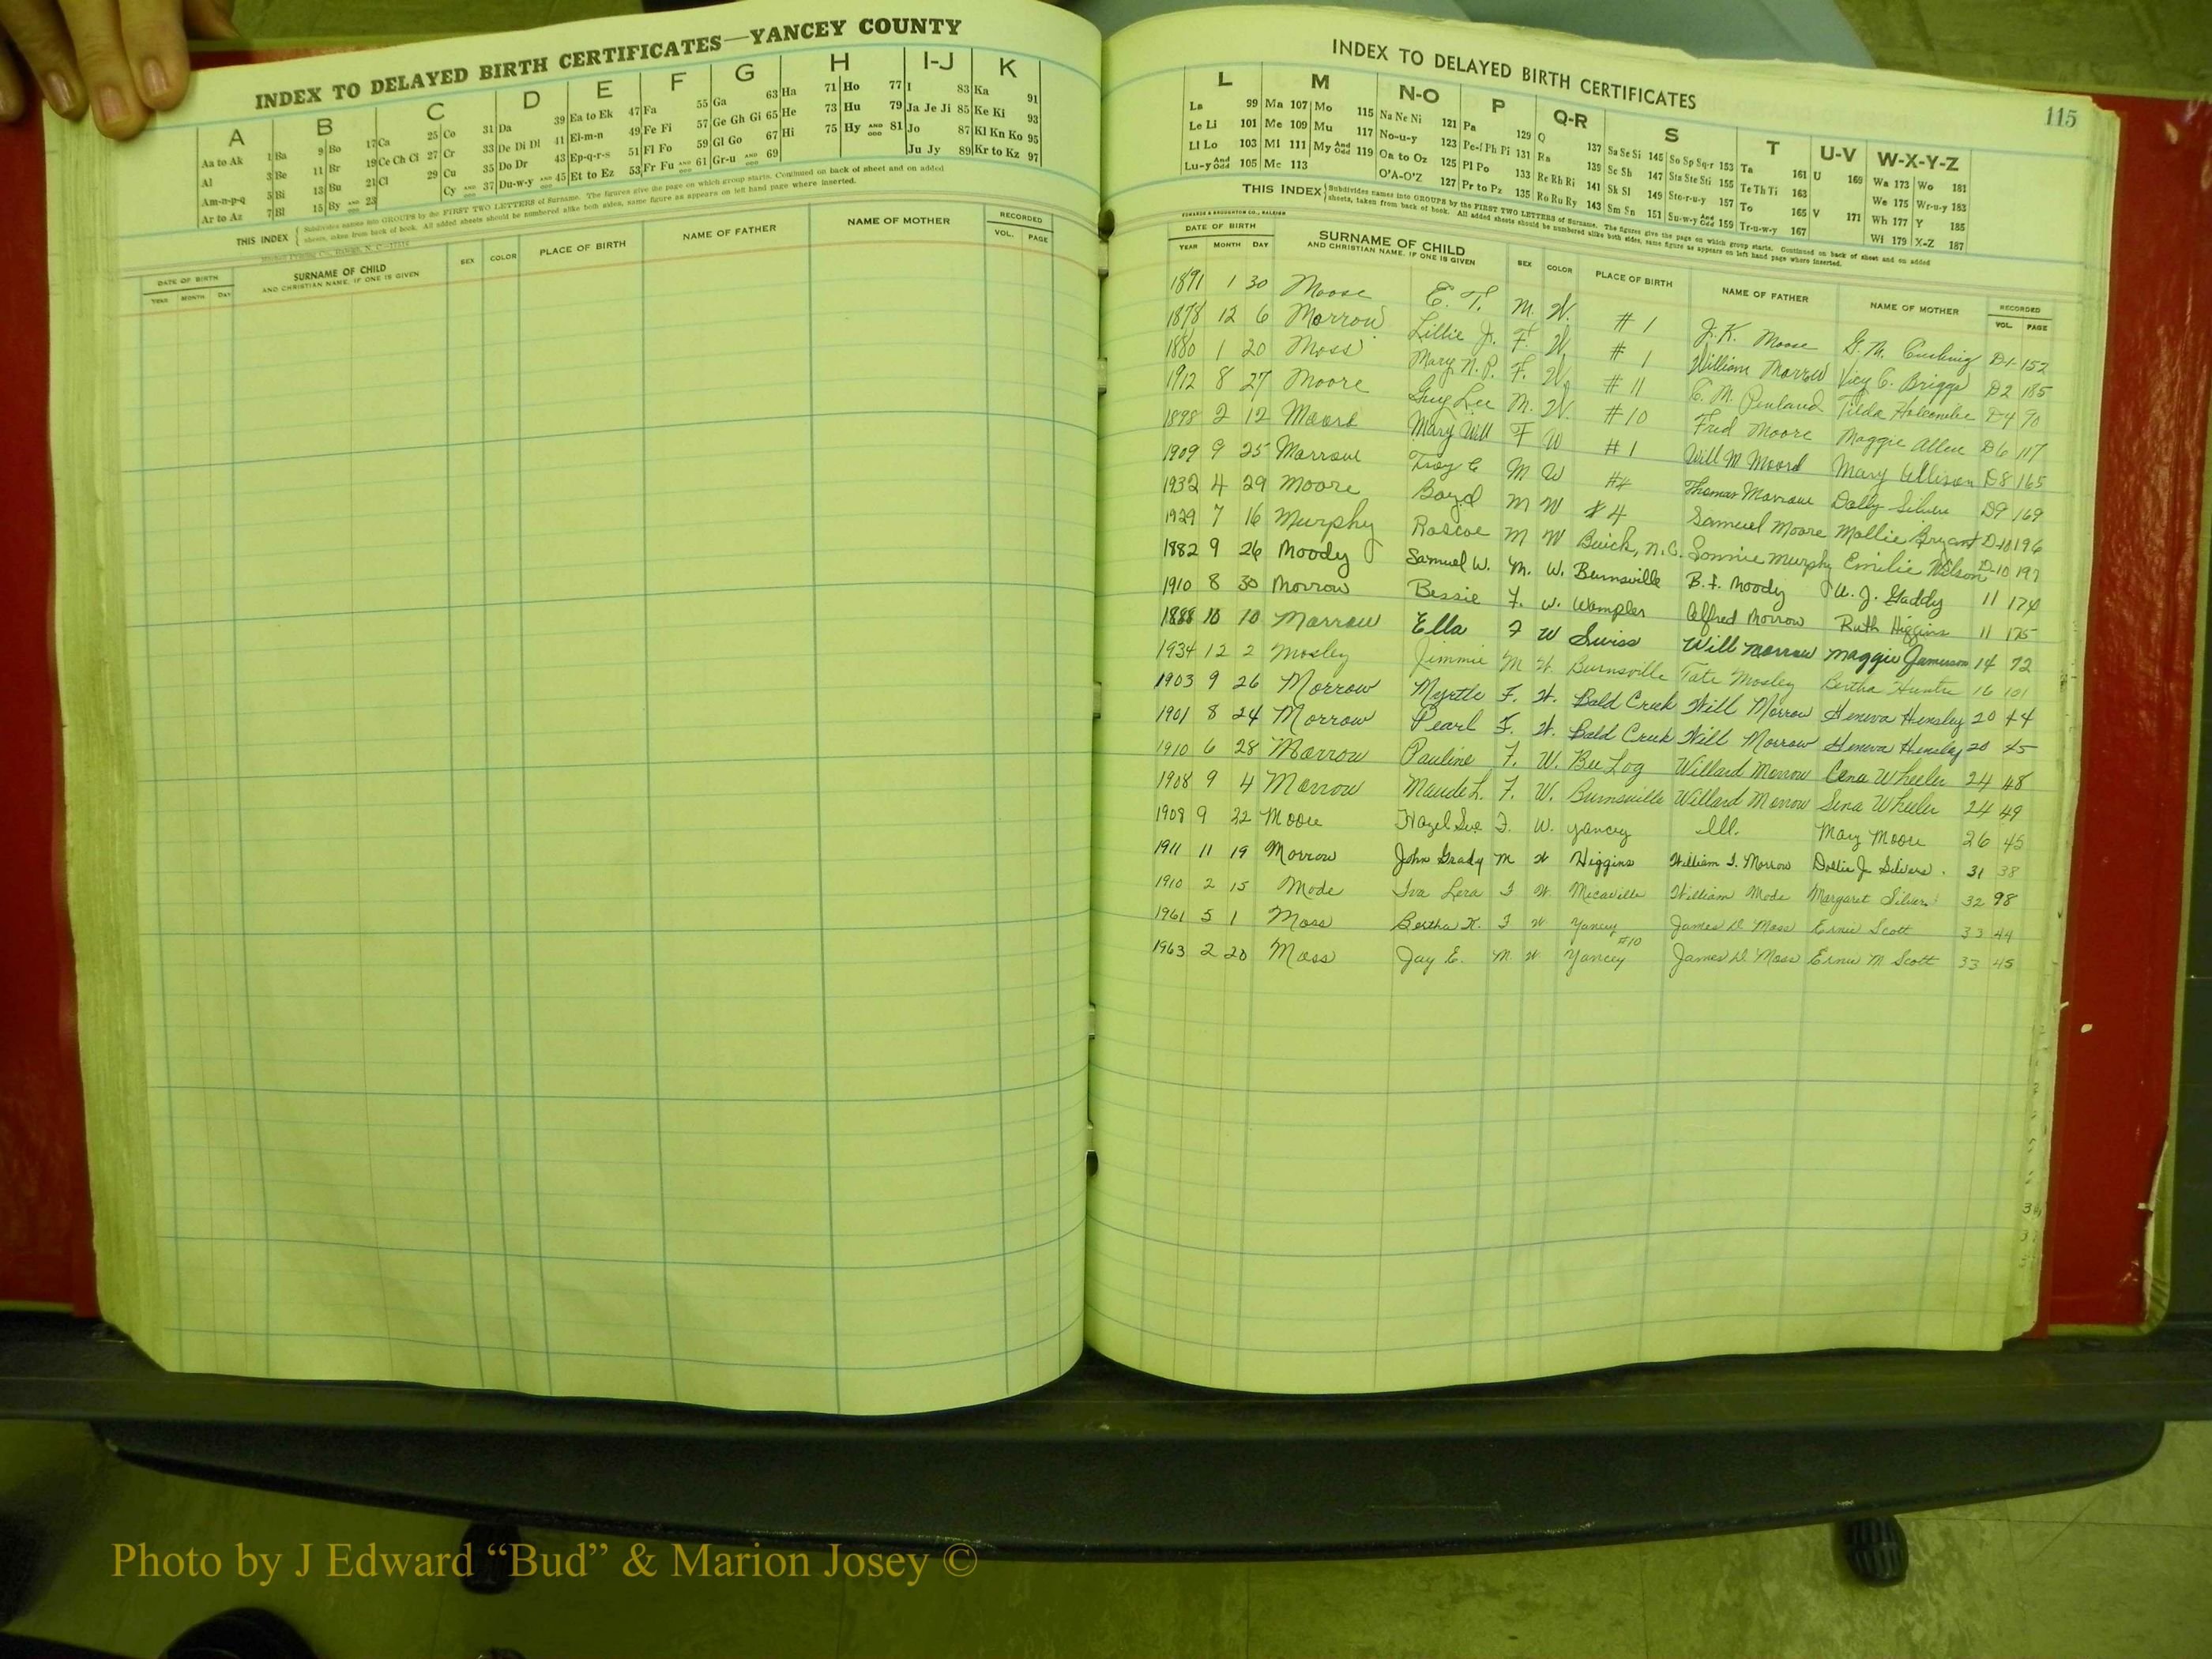 INDEX TO DELAYED BIRTH CERTIFICATES—YANCEY COUNTY
A B C D E F G H I-J K
Aa to Ak 1 Ba 9 Bo 17 Ca 25 Co 31 Da 39 Ea to Ek 47 Fa 55 Ga 63 Ha 71 Ho 77 I 83 Ka 91
Al 3 Be 11 Br 19 Ce Ch Ci 27 Cr 33 De Di Dl 41 El-m-n 49 Fe Fi 57 Ge Gh Gi 65 He 73 Hu 79 Ja Je Ji 85 Ke Ki 93
Am-n-p-q 5 Bi 13 Bu 21 Cl 29 Cu 35 Do Dr 43 Ep-q-r-s 51 Fl Fo 59 Gl Go 67 Hi 75 Hy AND ODD 81 Jo 87 Kl Kn Ko 95
Ar to Az 7 Bl 15 By AND ODD 23 Cy AND ODD 37 Du-w-y AND ODD 45 Et to Ez 53 Fr Fu AND ODD 61 Gr-u AND ODD 69 Ju Jy 89 Kr to Kz 97
THIS INDEX { Subdivides names into GROUPS by the FIRST TWO LETTERS of Surname. The figures give the page on which group starts. Continued on back of sheet and on added
sheets, taken from back of book. All added sheets should be numbered alike both sides, same figure as appears on left hand page where inserted.
DATE OF BIRTH SURNAME OF CHILD SEX COLOR PLACE OF BIRTH NAME OF FATHER NAME OF MOTHER RECORDED
YEAR MONTH DAY AND CHRISTIAN NAME, IF ONE IS GIVEN VOL. PAGE
INDEX TO DELAYED BIRTH CERTIFICATES
115
L M N-O P Q-R S T U-V W-X-Y-Z
La 99 Ma 107 Mo 115 Na Ne Ni 121 Pa 129 Q 137 Sa Se Si 145 So Sp Sq-r 153 Ta 161 U 169 Wa 173 Wo 181
Le Li 101 Me 109 Mu 117 No-u-y 123 Pe-f Ph Pi 131 Ra 139 Sc Sh 147 Sta Ste Sti 155 Te Th Ti 163 We 175 Wr-u-y 183
Ll Lo 103 Mi 111 My And Odd 119 Oa to Oz 125 Pl Po 133 Re Rh Ri 141 Sk Sl 149 Sto-r-u-y 157 To 165 V 171 Wh 177 Y 185
Lu-y And Odd 105 Mc 113 O'A-O'Z 127 Pr to Pz 135 Ro Ru Ry 143 Sm Sn 151 Su-w-y And Odd 159 Tr-u-w-y 167 Wi 179 X-Z 187
THIS INDEX { Subdivides names into GROUPS by the FIRST TWO LETTERS of Surname. The figures give the page on which group starts. Continued on back of sheet and on added
sheets, taken from back of book. All added sheets should be numbered alike both sides, same figure as appears on left hand page where inserted.
EDWARDS & BROUGHTON CO., RALEIGH
DATE OF BIRTH SURNAME OF CHILD SEX COLOR PLACE OF BIRTH NAME OF FATHER NAME OF MOTHER RECORDED
YEAR MONTH DAY AND CHRISTIAN NAME, IF ONE IS GIVEN VOL. PAGE
1891 1 30 Moose E. T. M. W. # 1 J. K. Moose G. M. D-1 152
1878 12 6 Morrow Lillie J. F. W. # 1 William Morrow Vicy C. Briggs D2 185
1880 1 20 Moss Mary N. P. F. W. # 11 C. M. Penland Tilda Holcombe D4 90
1912 8 27 Moore Guy Lee M. W. # 10 Fred Moore Maggie Allen D6 117
1898 2 12 Mary Will F W # 1 Will M Mary Allison D8 165
1909 9 25 Morrow Troy C M W #4 Thomas Morrow Dolly Silver D9 169
1932 4 29 Moore Boyd M W # 4 Samuel Moore Mollie Bryant D-10 196
1929 7 16 Murphy Roscoe M W Buick, N.C. Lonnie Murphy Emilie Wilson D-10 197
1882 9 26 Moody Samuel W. M. W. Burnsville B. F. Moody U. J. Gaddy 11 174
1910 8 30 Morrow Bessie F. W. Wampler Alfred Morrow Ruth Higgins 11 175
1888 10 10 Morrow Ella F W Swiss Will Morrow Maggie Jamerson 14 72
1934 12 2 Mosley Jimmie M W. Burnsville Tate Mosley Bertha Hunter 16 101
1903 9 26 Morrow Myrtle F. W. Bald Creek Will Morrow Geneva Hensley 20 44
1901 8 24 Morrow Pearl F. W. Bald Creek Will Morrow Geneva Hensley 20 45
1910 6 28 Morrow Pauline F. W. Bee Log Willard Morrow Cena Wheeler 24 48
1908 9 4 Morrow Maude L. F. W. Burnsville Willard Morrow Sena Wheeler 24 49
1908 9 22 Moore Hazel Sue F. W. Yancey Ill. Mary Moore 26 45
1911 11 19 Morrow John Grady M W Higgins William T. Morrow Dollie J. Silvers 31 38
1910 2 15 Mode Iva Lera F W. Micaville William Mode Margaret Silvers 32 98
1961 5 1 Moss Bertha K. F W Yancey James D. Moss Ernie Scott 33 44
#10
1963 2 20 Moss Jay E. M. W Yancey James D. Moss Ernie M Scott 33 45
Photo by J Edward “Bud” & Marion Josey ©